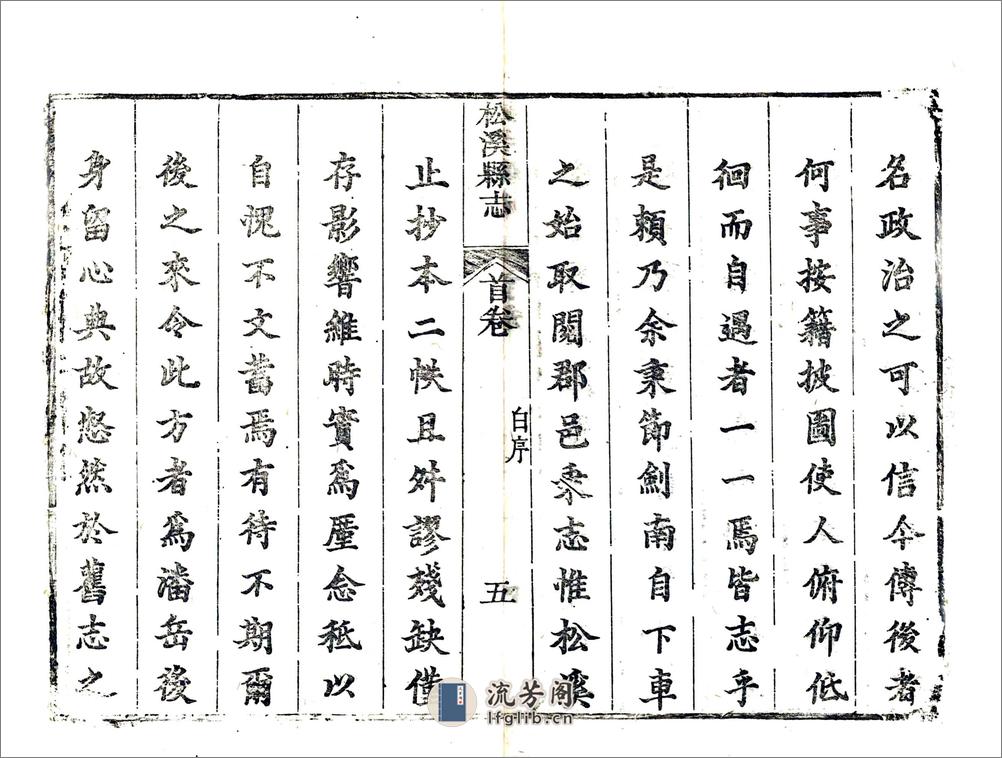 名政治之可以信今傳後者
何事按籍披圖使人俯仰低
徊而自遇者一一焉皆志乎
是賴乃余秉節劍南自下車
之始取閱郡邑乘志惟松溪
松溪縣志
首卷
自序
五
止抄本二帙且舛謬殘缺僅
存影響維時實爲廑念秪以
自愧不文蓄焉有待不期爾
後之來令此方者爲潘岳後
身留心典故惄然於舊志之
流芳阁
lfglib.cn